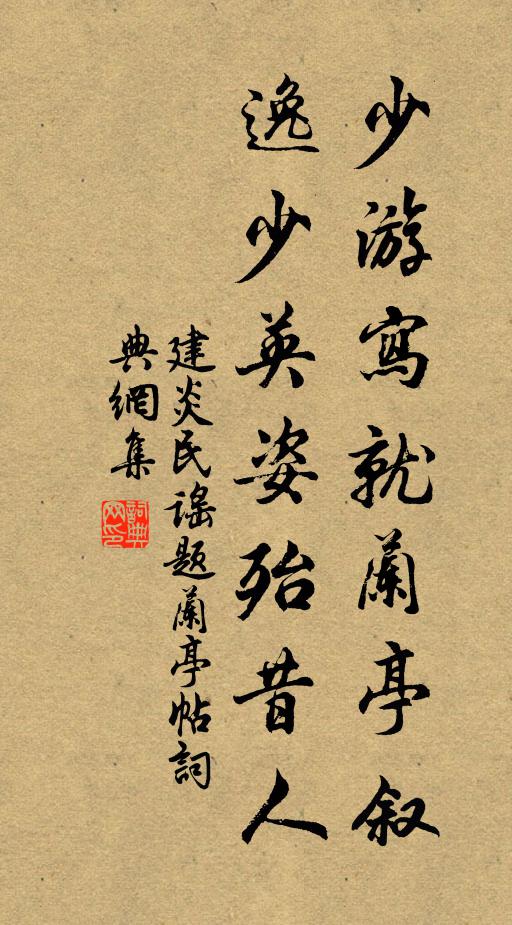 少游寫就蘭亭叙
逸少英姿殆昔人
建炎民謠题蘭亭帖詞
典網集
詞典網印